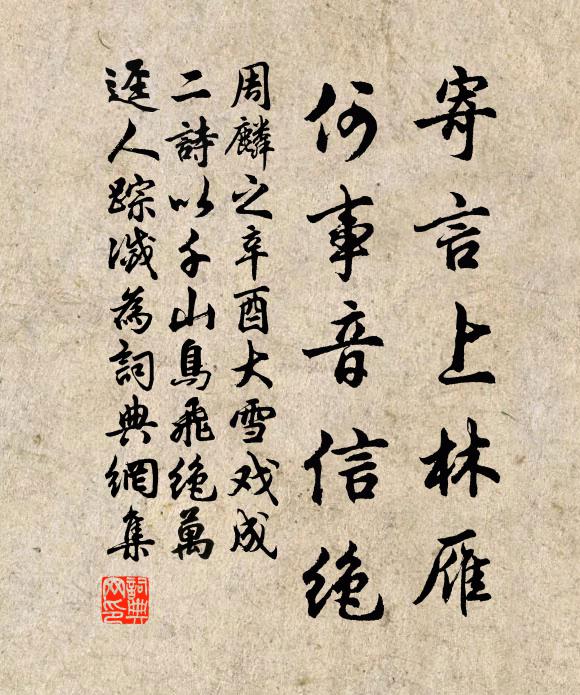 寄言上林雁
何事音信绝
周麟之辛酉大雪戏成
二詩以千山鳥飛绝萬
逕人踪滅為詞典網集
詞典
网印